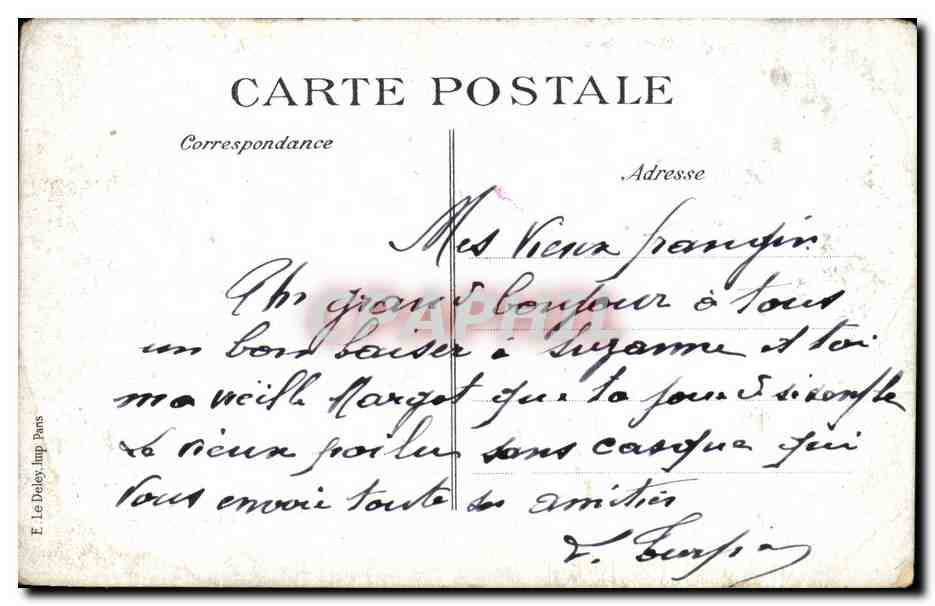 CARTE POSTALE
Correspondance
Adresse
Mes vieux frangin
Un grand bonjour à tous
un bon baiser à Suzanne et toi
ma vieille Margot que ta
Le vieux poilu sans casque qui
vous envoie toute ses amitiés
L. Turpin
E. Le Deley, Imp Paris
CPAPHIL